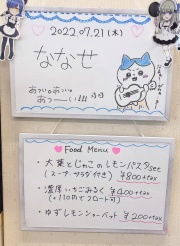 2022.07.21(木)
ななせ
あつい。あつい。
あつーい!!!
Food Menu
・大葉とじゃこのレモンパスタset
(スープ・サラダ付き) ¥800+tax
・濃厚いちごみるく ¥400+tax
(+110円でフロート可)
・ゆずレモンシャーベット ¥200+tax